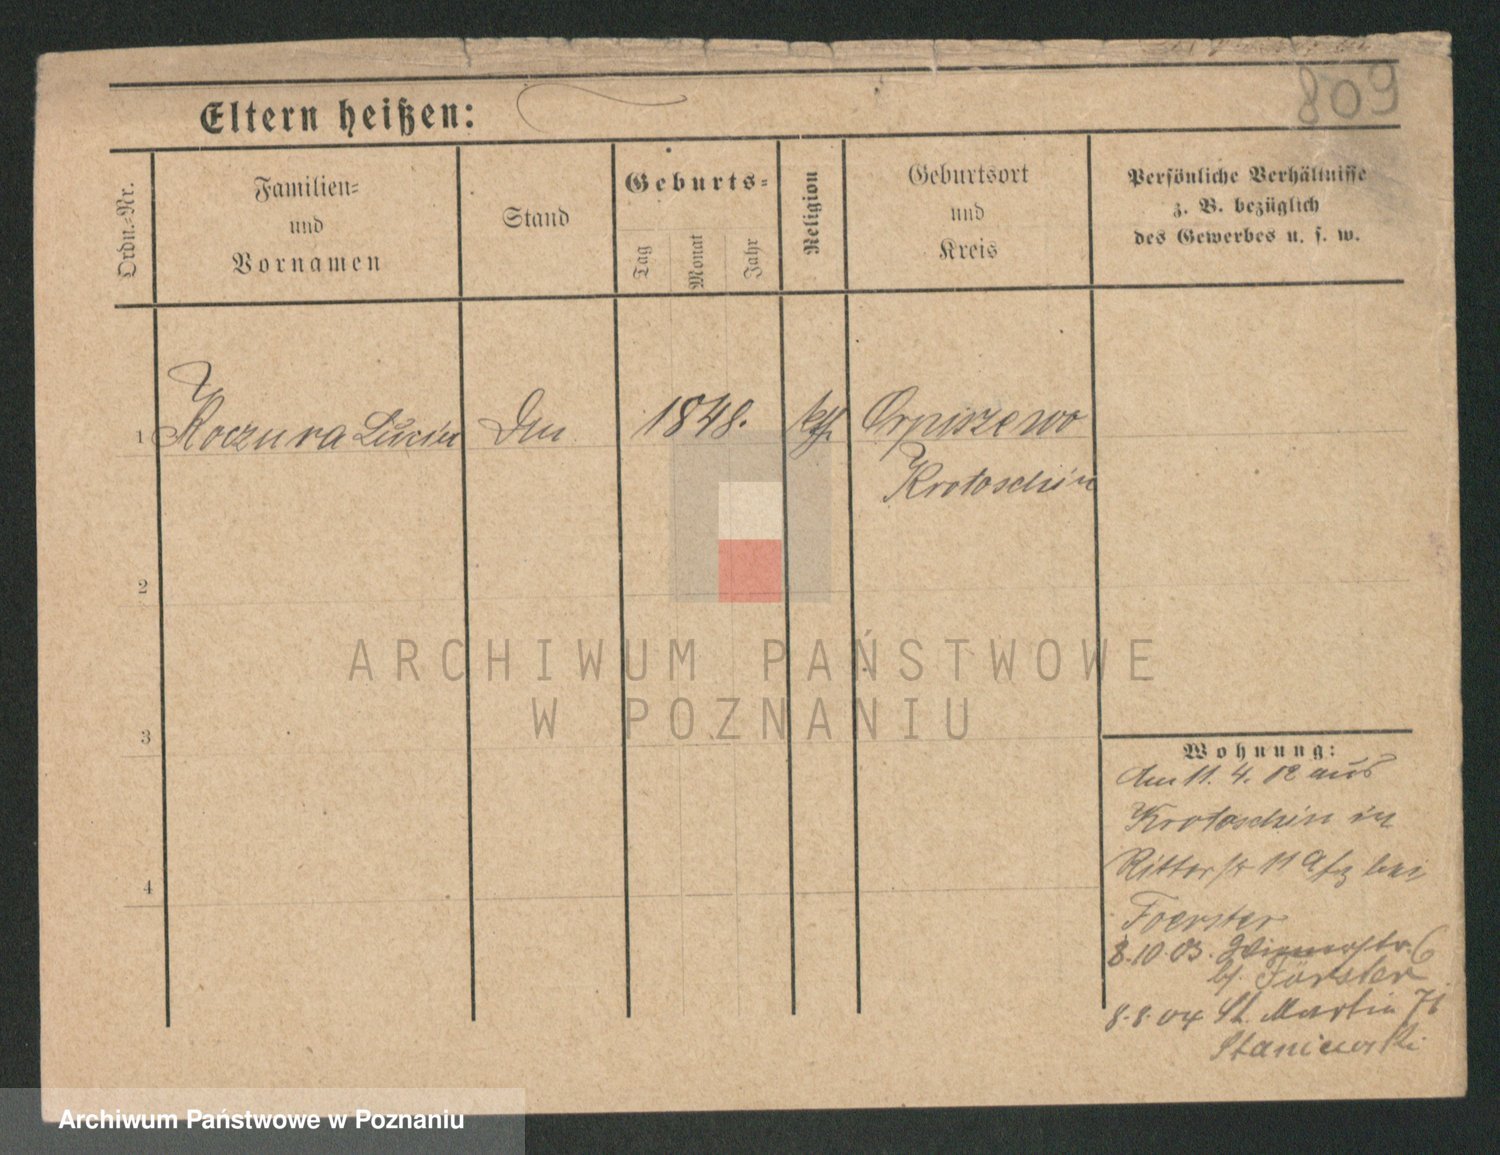 809
Eltern heißen:
Ordn.-Nr.
Familien-
und
Vornamen
Stand
Geburts-
Tag
Monat
Jahr
Religion
Geburtsort
und
Kreis
Persönliche Verhältnisse
z. B. bezüglich
des Gewerbes u. s. w.
1 Koczura Lucia 1848. kth. Orpiszewo
Krotoschin
2
3
4
ARCHIWUM PAŃSTWOWE
W POZNANIU
Wohnung:
Am 11. 4. 02 aus
Krotoschin in
Ritterstr 11 bei
Foerster
8.10.03. 6
b/. Förster
8.8.04 St. Martin 71
Staniewski
Archiwum Państwowe w Poznaniu